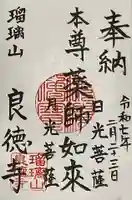 奉納
令和七年
二月二十三日
本尊薬師如来
日光菩薩
月光菩薩
瑠璃山
良徳寺
瑠璃山
良徳寺